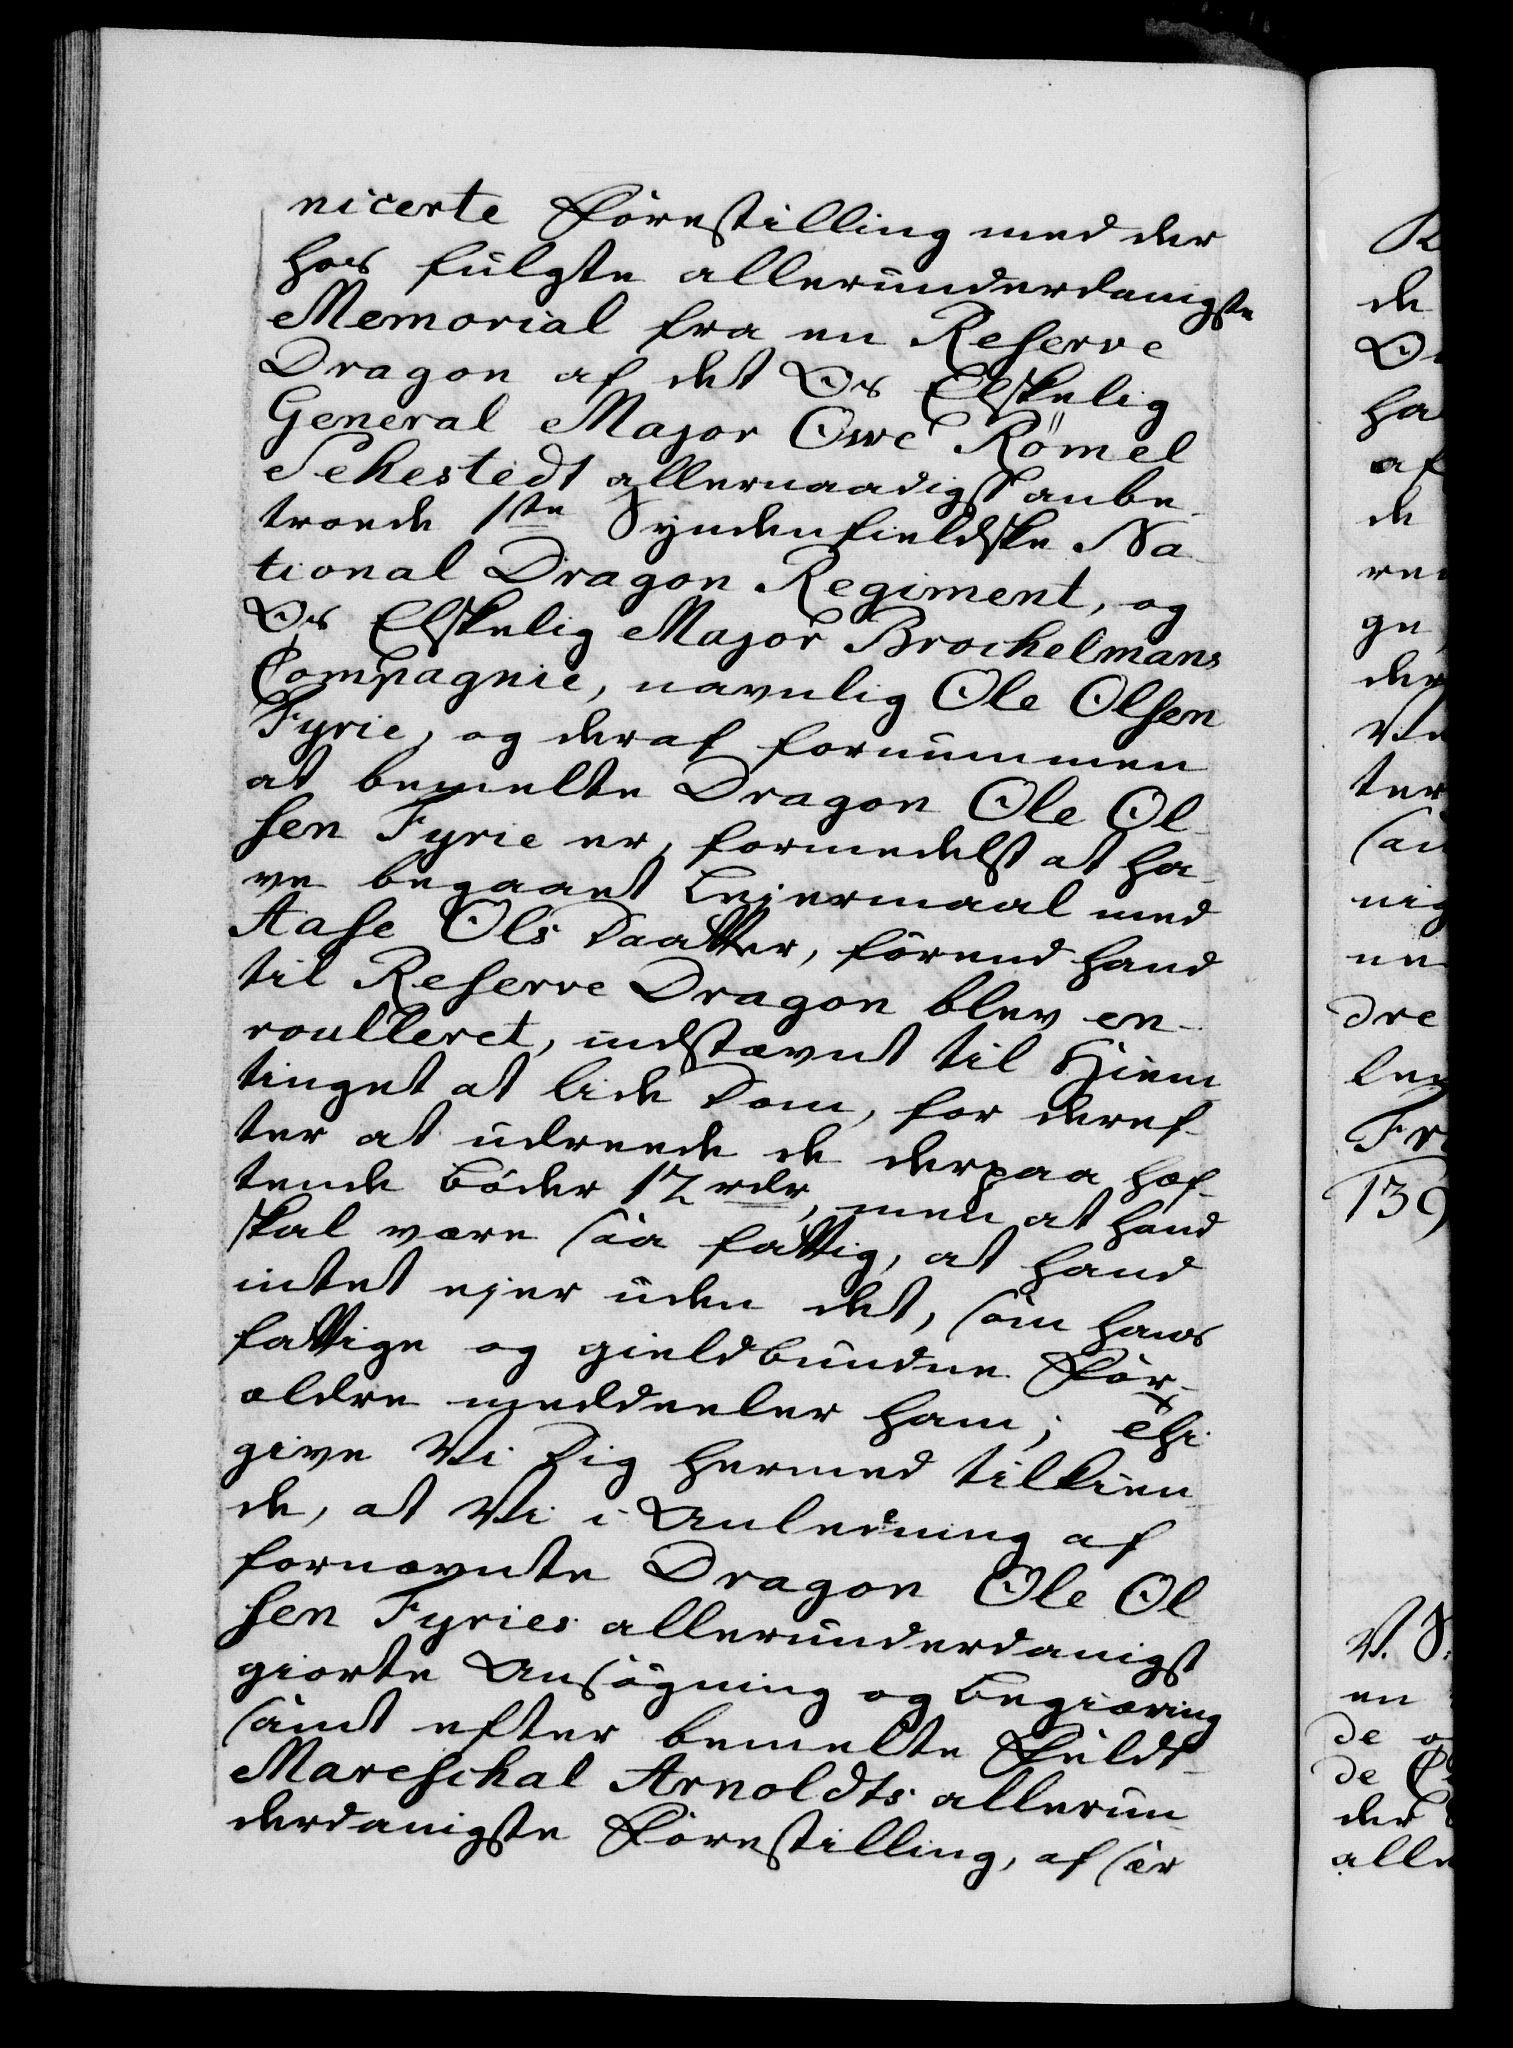 nicerte Förestilling med der
hos fulgte allerunderdanigste
Memorial fra en Reserve
Dragon af det Os Elskelig
General Major Owe Römel
Sehestedt allernaadigst anbe-
troede 1ste Syndenfieldske Na-
tional Dragon Regiment, og
Os Elskelig Major Brockelmans
Compagnie, navnlig Ole Olsen
Fyrie, og deraf fornummen
at bemelte Dragon Ole Ol-
sen Fyrie er, formedelst at ha-
ve begaaet Leiermaal med
Aase Ols Daatter, förend hand
til Reserve Dragon blev en-
roulleret, indstævnt til Hiem-
tinget at lide Dom, for deref-
ter at udreede de derpaa hæf-
tende Böder 12 rdr, men at hand
skal være saa fattig, at hand
intet ejer uden det, som hans
fattige og gieldbundne For-
ældre meddeeler ham; Thi
give Vi Dig hermed tilkien-
de, at Vi i Anledning af
fornævnte Dragon Ole Ol-
sen Fyries allerunderdanigst
giorte Ansögning og Begiæring
samt efter bemelte Feldt-
Mareschal Arnoldts allerun-
derdanigste Förestilling, af sær